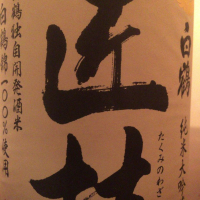 白鶴
純米大吟
たくみのわざ
匠技
鶴独自開発酒米
白鶴錦一〇〇%使用